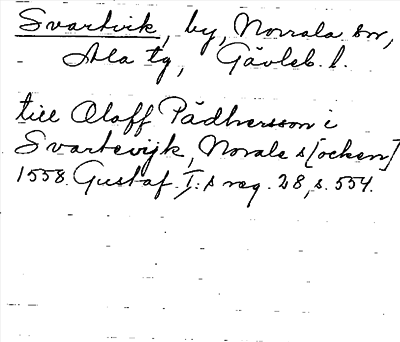 Svartvik, by, Norrala sn,
Ala tg, Gävleb. l.
till Oloff Pädhersson i
Svartevijk, Norale s[ocken]
1558. Gustaf I:s reg. 28, s. 554.